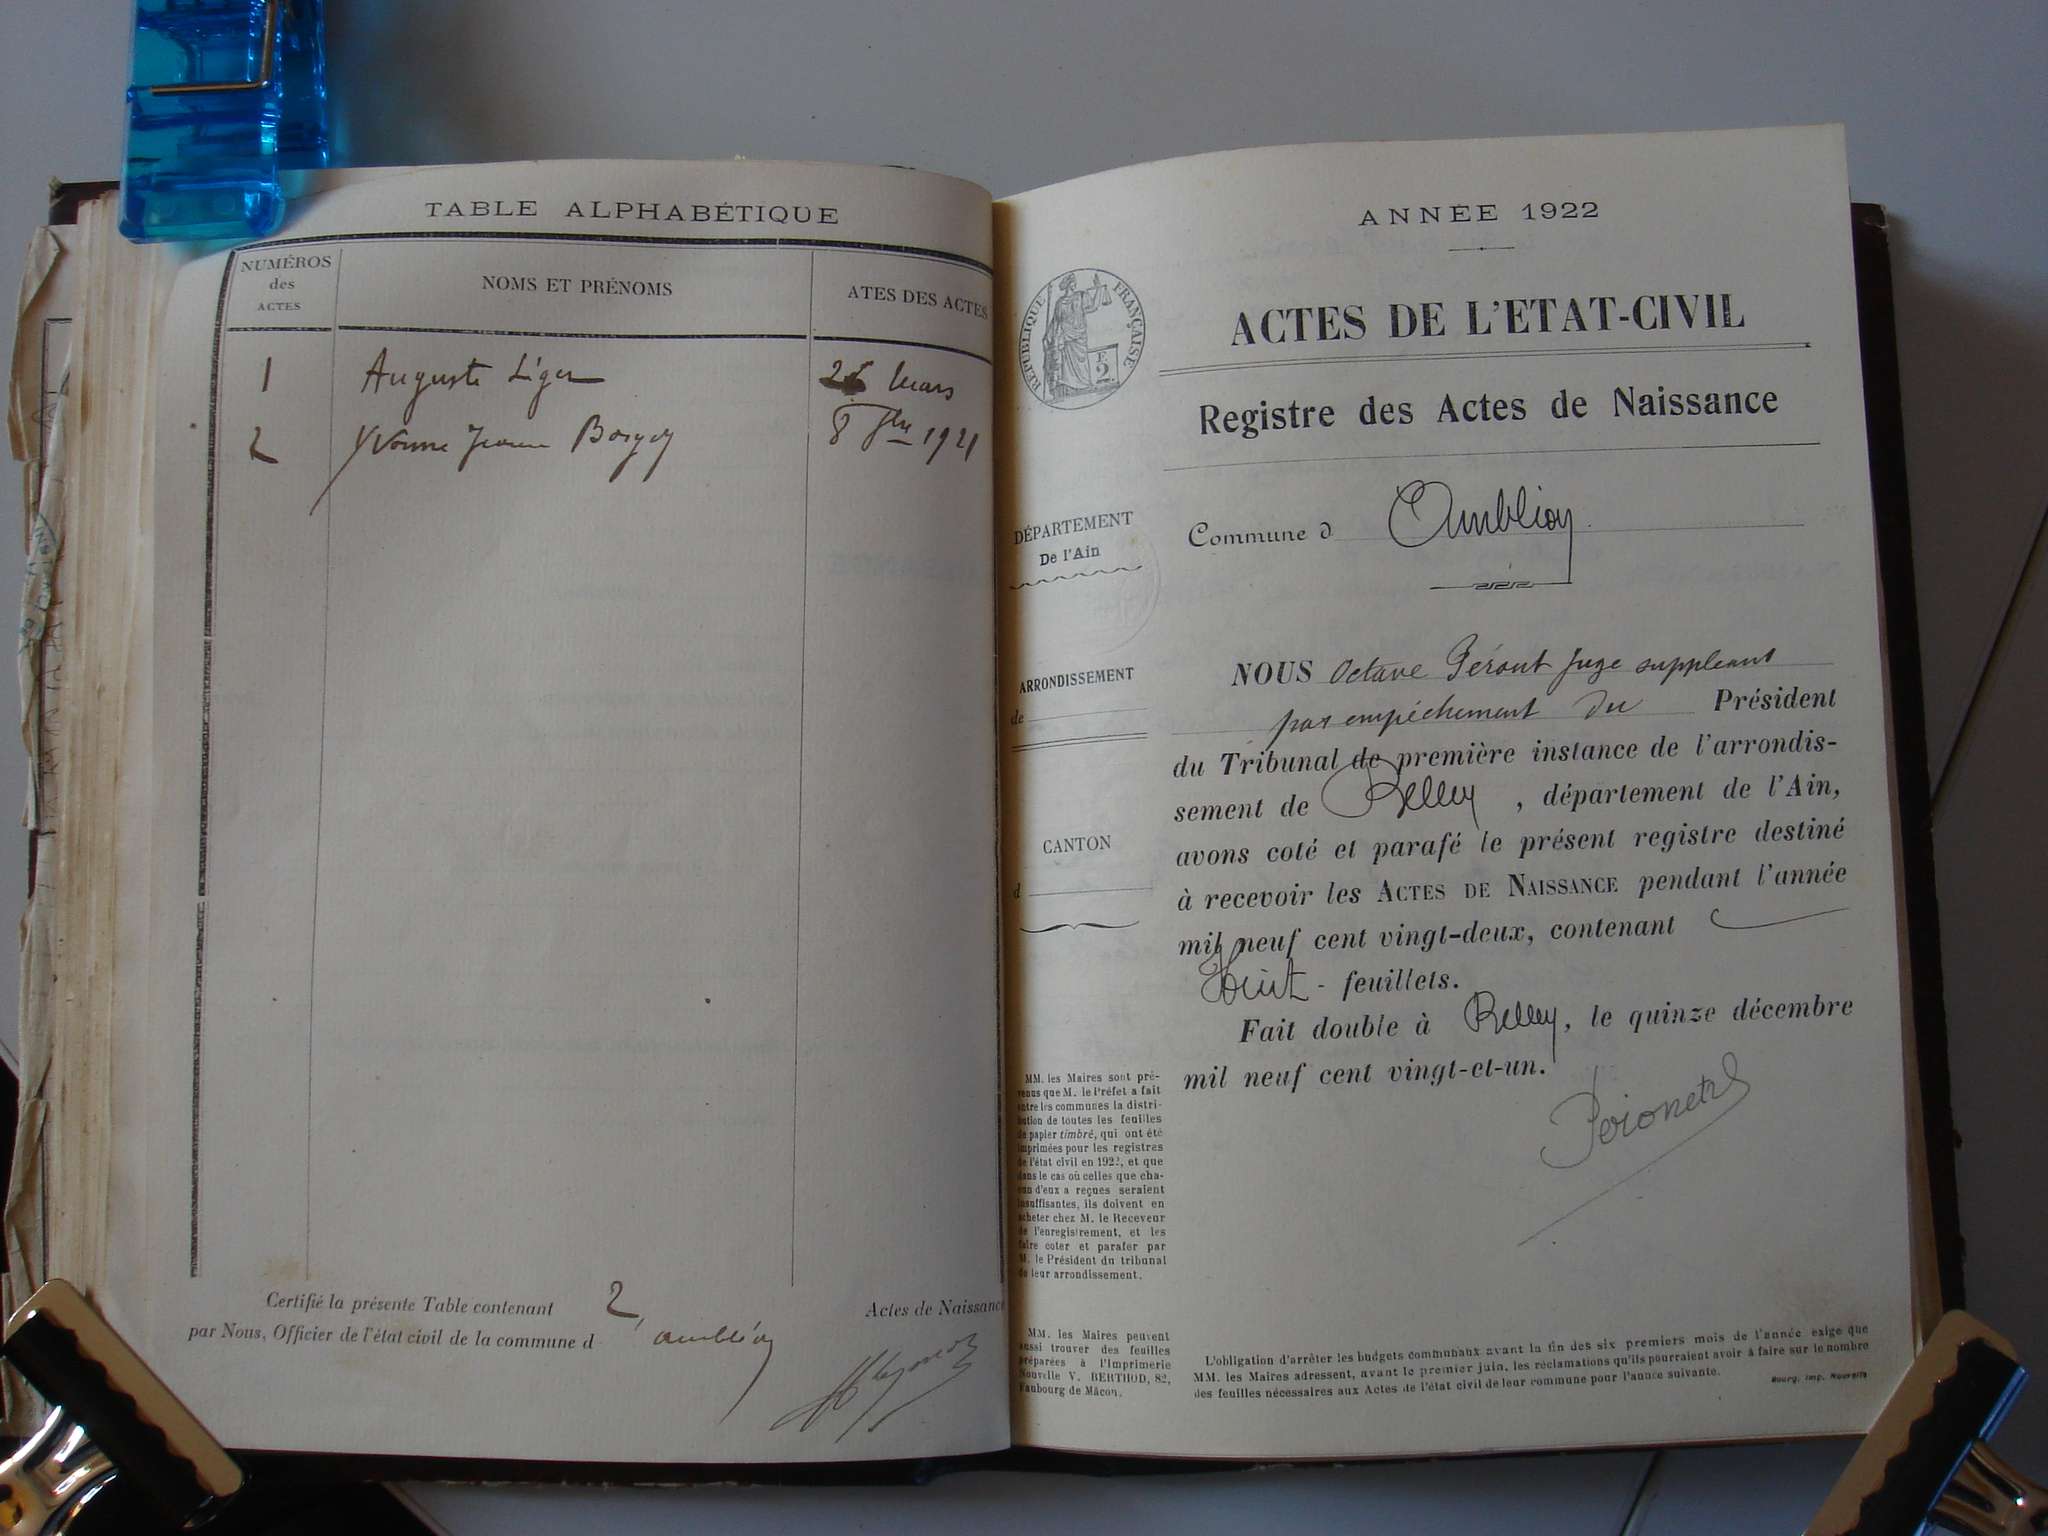 TABLE ALPHABÉTIQUE
NUMÉROS
des
ACTES
NOMS ET PRÉNOMS
ATES DES ACTES
1 Auguste Liger Mars
2 Yvonne Jeanne 8 1921
Certifié la présente Table contenant 2 Actes de Naissance
par Nous, Officier de l'état civil de la commune d ambléon
ANNÉE 1922
RÉPUBLIQUE FRANÇAISE
F.
2
ACTES DE L'ETAT-CIVIL
Registre des Actes de Naissance
DÉPARTEMENT
De l'Ain
Commune d Ambléon
ARRONDISSEMENT
de
CANTON
d
NOUS Octave Péront juge suppléant
par empêchement du Président
du Tribunal de première instance de l'arrondis-
sement de Belley, département de l'Ain,
avons coté et parafé le présent registre destiné
à recevoir les ACTES DE NAISSANCE pendant l'année
mil neuf cent vingt-deux, contenant
huit - feuillets.
Fait double à Belley, le quinze décembre
mil neuf cent vingt-et-un.
MM. les Maires sont pré-
venus que M. le Préfet a fait
entre les communes la distri-
bution de toutes les feuilles
de papier timbré, qui ont été
imprimées pour les registres
de l'état civil en 1922, et que
dans le cas où celles que cha-
cun d'eux a reçues seraient
insuffisantes, ils doivent en
acheter chez M. le Receveur
de l'enregistrement, et les
faire coter et parafer par
M. le Président du tribunal
de leur arrondissement.
MM. les Maires peuvent
aussi trouver des feuilles
préparées à l'Imprimerie
Nouvelle V. BERTHOD, 82,
Faubourg de Mâcon.
L'obligation d'arrêter les budgets communaux avant la fin des six premiers mois de l'année exige que
MM. les Maires adressent, avant le premier juin, les réclamations qu'ils pourraient avoir à faire sur le nombre
des feuilles nécessaires aux Actes de l'état civil de leur commune pour l'année suivante.
Bourg, Imp. Nouvelle